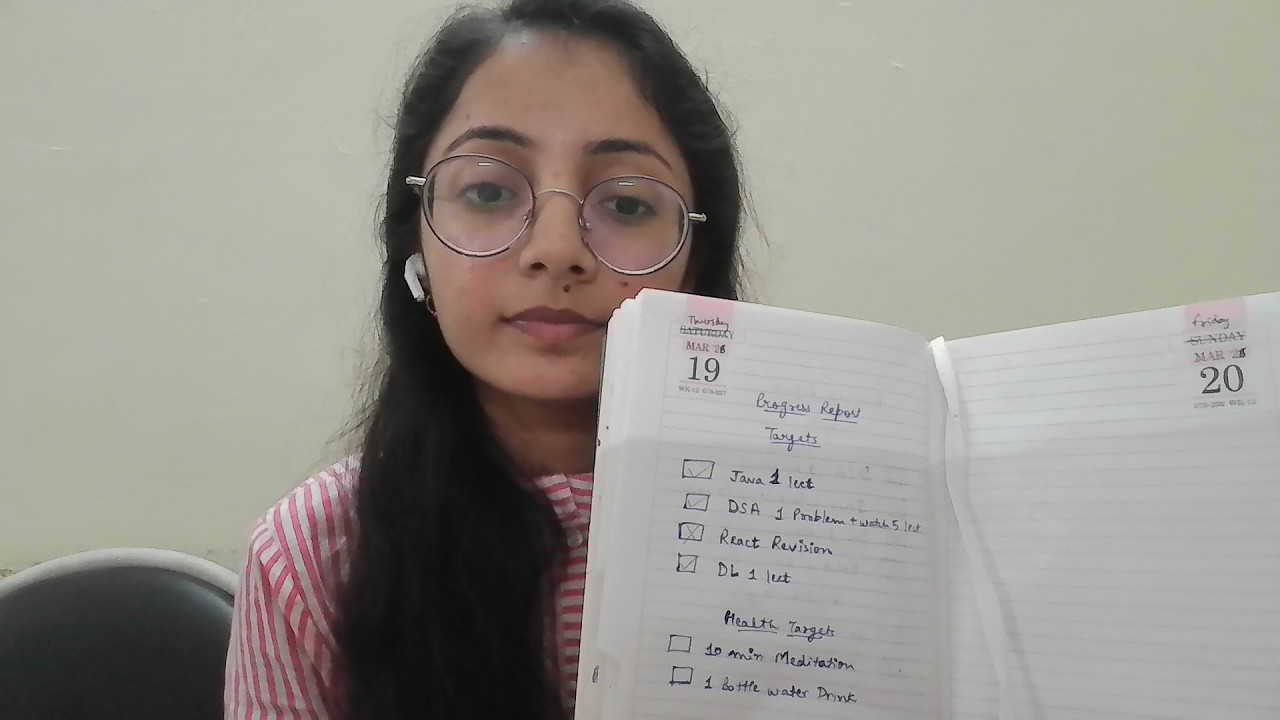 Thursday
SATURDAY
MAR 26
19
Progress Report
Targets
Java 1 lect
DSA 1 Problem + watch 5 lect
React Revision
Db 1 lect
Health Targets
10 min Meditation
1 bottle water Drink
Friday
SUNDAY
MAR 26
20